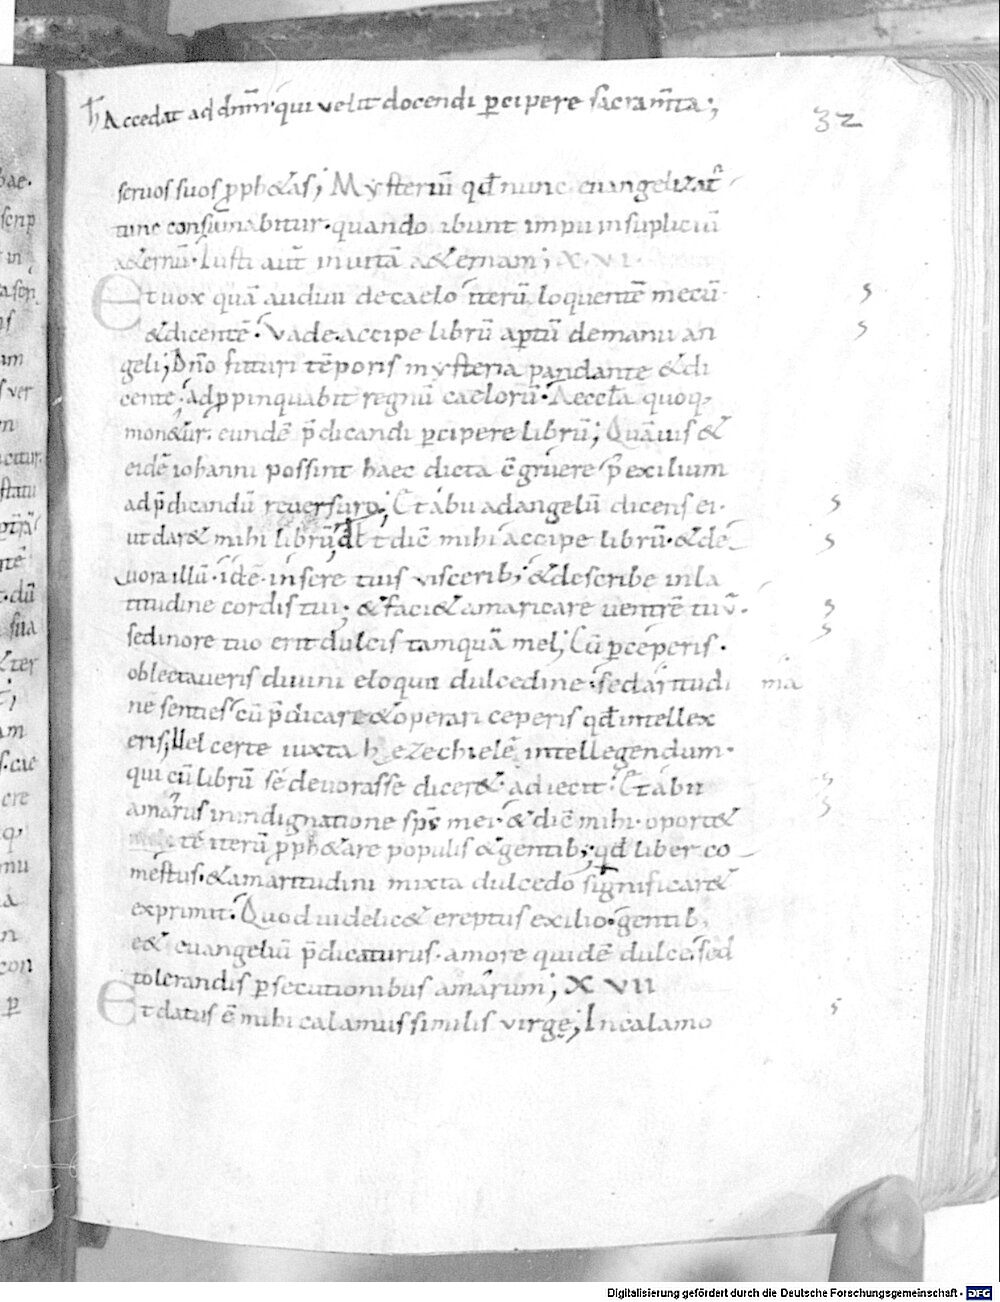 ħ Accedat ad dn̄m qui velit docendi ꝑcipere sacram̄ta;
32
seruos suos ꝓph&as; Mysteriū qđ nunc euangelizat᷑
tunc consūmabitur· quando ibunt impii insupliciū
a&ernū· Iusti aut̄ inuitā a&ernam; XVI·
Et uox quā audiui decaelo iterū loquentē mecū·
&dicentē· Vade accipe librū aptū demanu an
geli; Dn̄o futuri tēporis mysteria pandante &di
cente; adꝓpinquabit regnū caelorū· Aeccl̄a quoq;
mon&ur· eundē p̄dicandi ꝑcipere librū; Quāuis &
eidē iohanni possint haec dicta ꝯgruere p̄ exilium
adp̄dicandū reuersuro; Et abii adangelū dicens ei·
ut dar& mihi librū; Et dic̄ mihi accipe librū· &de
uora illū· idē· insere tuis visceribꝫ &describe inla
titudine cordis tui; &faci& amaricare uentrē tuū·
sedinore tuo erit dulcis tamquā mel; Cū ꝑceperis·
oblectaueris diuini eloquii dulcedine· sed amaritudi
nē senties cū p̄dicare &operari ceperis qđ intellex
eris; Vel certe iuxta hezechielē intellegendum·
qui cū librū sē deuorasse dicer& adiecit· Et abii
amarus inindignatione sp̄s mei· & dic̄ mihi· oport&
te iterū ꝓph&are populis &gentibꝫ; qđ liber co
mestus· &amaritudini mixta dulcedo significar&
exprimit· Quod uidelic& ereptus exilio· gentibꝫ
e& euangeliū p̄dicaturus· amore quidē dulce, sed
tolerandis ꝑsecutionibus amarum; XVII
Et datus ē mihi calamus similis virgę; In calamo
Digitalisierung gefördert durch die Deutsche Forschungsgemeinschaft - DFG